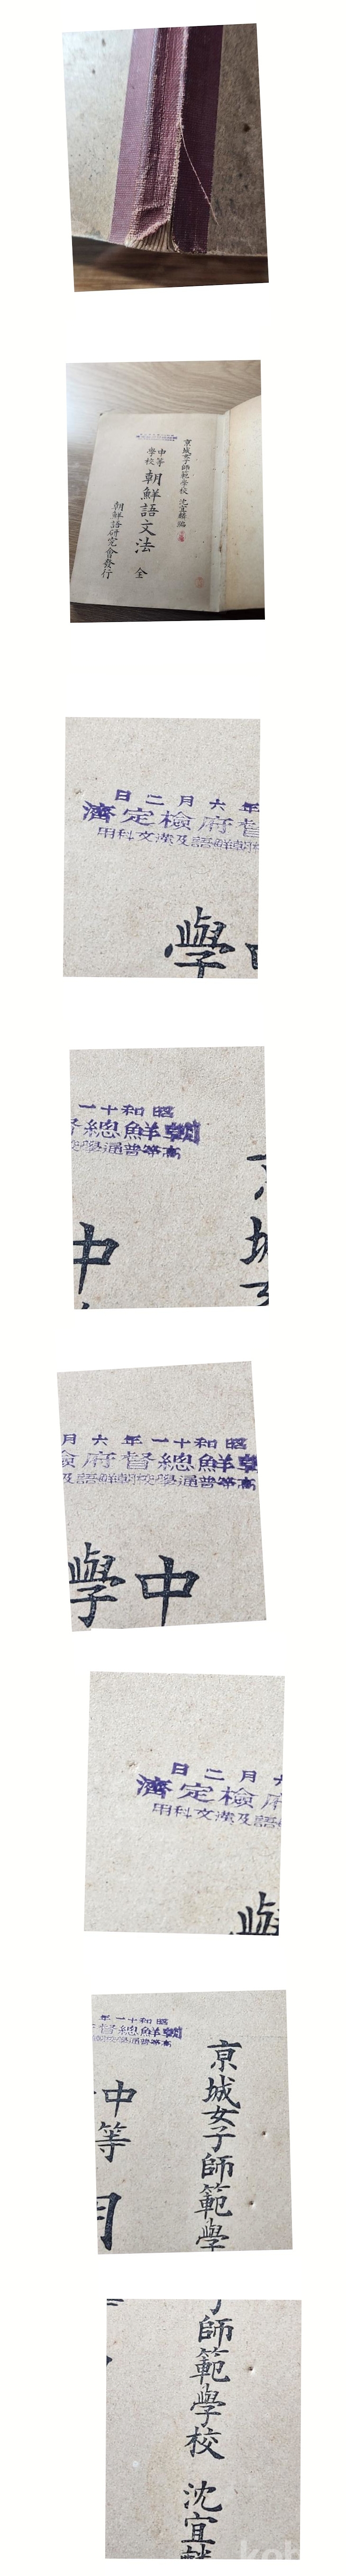 京城女子師範學校 沈宜麟編
中等
學校
朝鮮語文法 全
朝鮮語研究會發行
日二月六年
濟定檢府督
用科文漢及語鮮朝
學
一十和昭
督總鮮朝
學通普等高
中
京
城
月六年一十和昭
檢府督總鮮朝
及語鮮朝校學通普等高
學中
日二月六
濟定檢府
用科文漢及語
學
年一十和昭
督總鮮朝
高等普通學校
中等
朝
京城女子師範學
師範學校 沈宜麟
kob